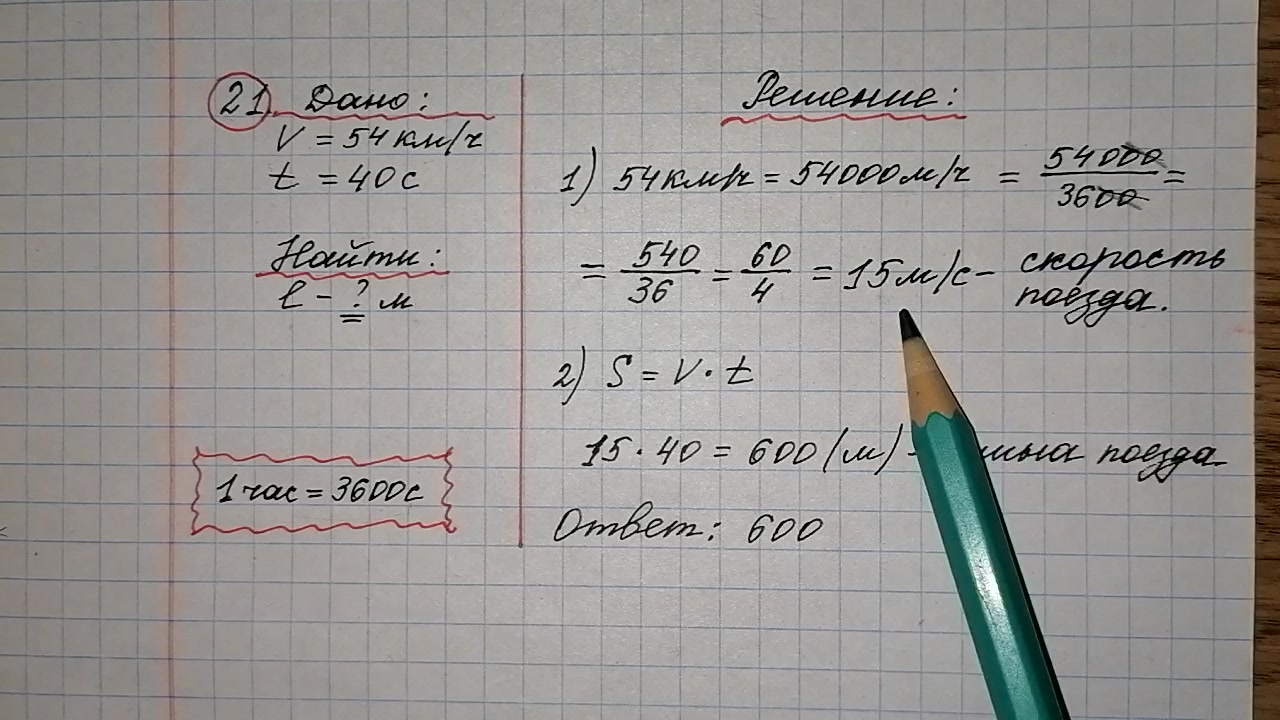 21 Дано:
V = 54 км/ч
t = 40 с
Найти:
l - ? м
1 час = 3600 с
Решение:
1) 54 км/ч = 54000 м/ч = 54000/3600 =
= 540/36 = 60/4 = 15 м/с - скорость поезда.
2) S = V · t
15 · 40 = 600 (м) - поезда
Ответ: 600